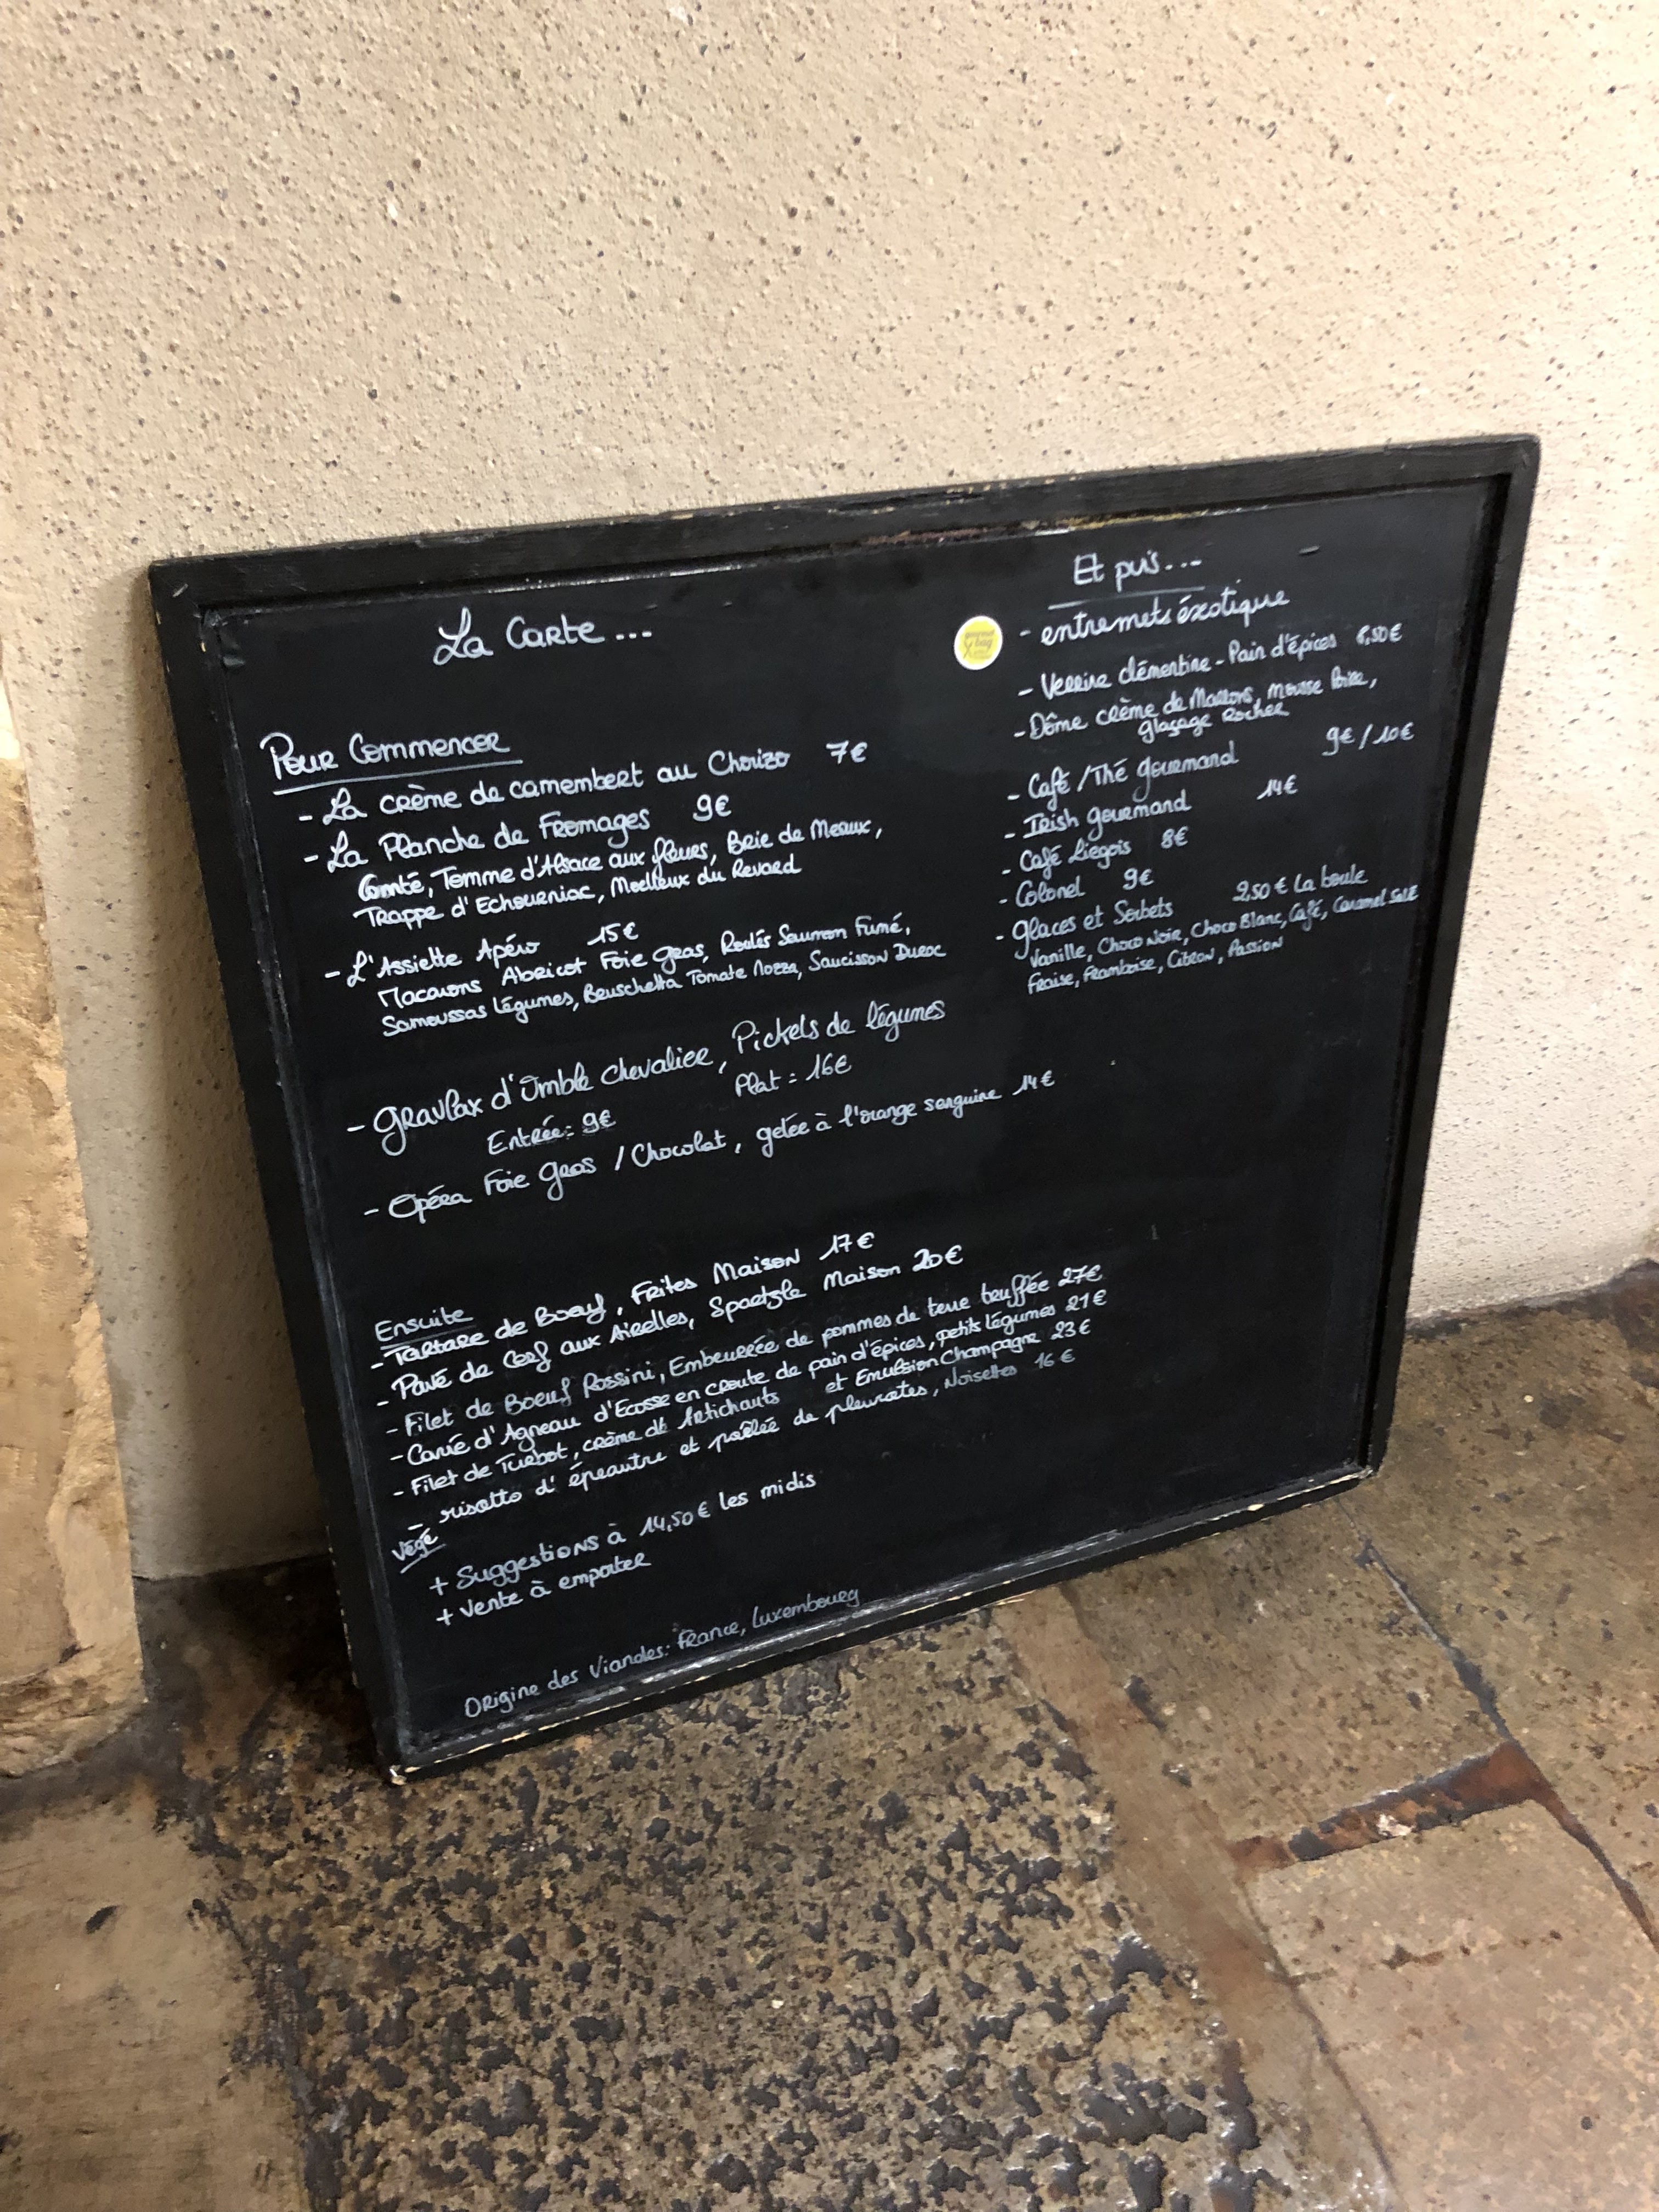 La Carte ...
Pour Commencer
- La crème de camembert au Chorizo 7€
- La Planche de Fromages 9€
Comté, Tomme d'Alsace aux fleurs, Brie de Meaux,
Trappe d'Echourniac, Moelleux du Revard
- L'Assiette Apéro 15€
Macarons Abricot Foie Gras, Roulés Saumon Fumé,
Samoussas Légumes, Bruschetta Tomate Mozza, Saucisson Duroc
- Gravlax d'Omble Chevalier, Pickels de légumes
Entrée: 9€ Plat = 16€
- Opéra Foie Gras / Chocolat, gelée à l'orange sanguine 14€
Ensuite
- Tartare de Boeuf, Frites Maison 17€
- Pavé de Cerf aux Airelles, Spaetzle Maison 20€
- Filet de Boeuf Rossini, Embeurrée de pommes de terre truffée 27€
- Carré d'Agneau d'Ecosse en croute de pain d'épices, petits légumes 21€
- Filet de Turbot, crème d'Artichauts et Emulsion Champagne 23€
- risotto d'épeautre et poêlée de pleurotes, Noisettes 16€
végé
+ Suggestions à 14,50€ les midis
+ Vente à emporter
Origine des Viandes: France, Luxembourg
Et puis...
- entremets éxotique
- Verrine clémentine - Pain d'épices 8,50€
- Dôme crème de Marrons, mousse Poire,
glaçage Rocher
- Café / Thé gourmand 9€ / 10€
- Irish gourmand 14€
- Café Liegois 8€
- Colonel 9€
- Glaces et Sorbets 2,50€ La boule
Vanille, Choco Noir, Choco Blanc, Café, Caramel Salé
Fraise, Framboise, Citron, Passion
gourmet
bag